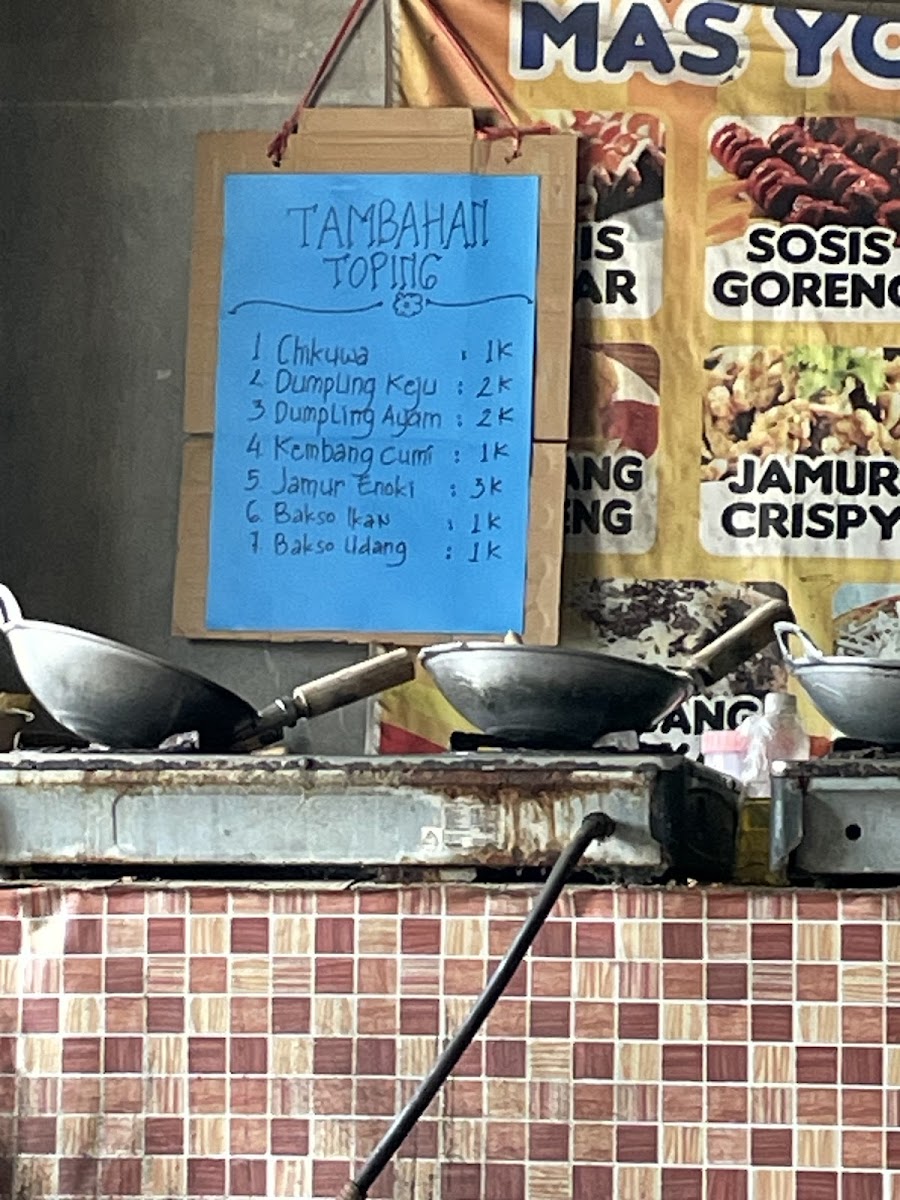 MAS YO
TAMBAHAN
TOPING
1. Chikuwa : 1K
2. Dumpling Keju : 2K
3. Dumpling Ayam : 2K
4. Kembang Cumi : 1K
5. Jamur Enoki : 3K
6. Bakso Ikan : 1K
7. Bakso Udang : 1K
IS
AR
SOSIS
GORENG
ANG
ENG
JAMUR
CRISPY
ANG